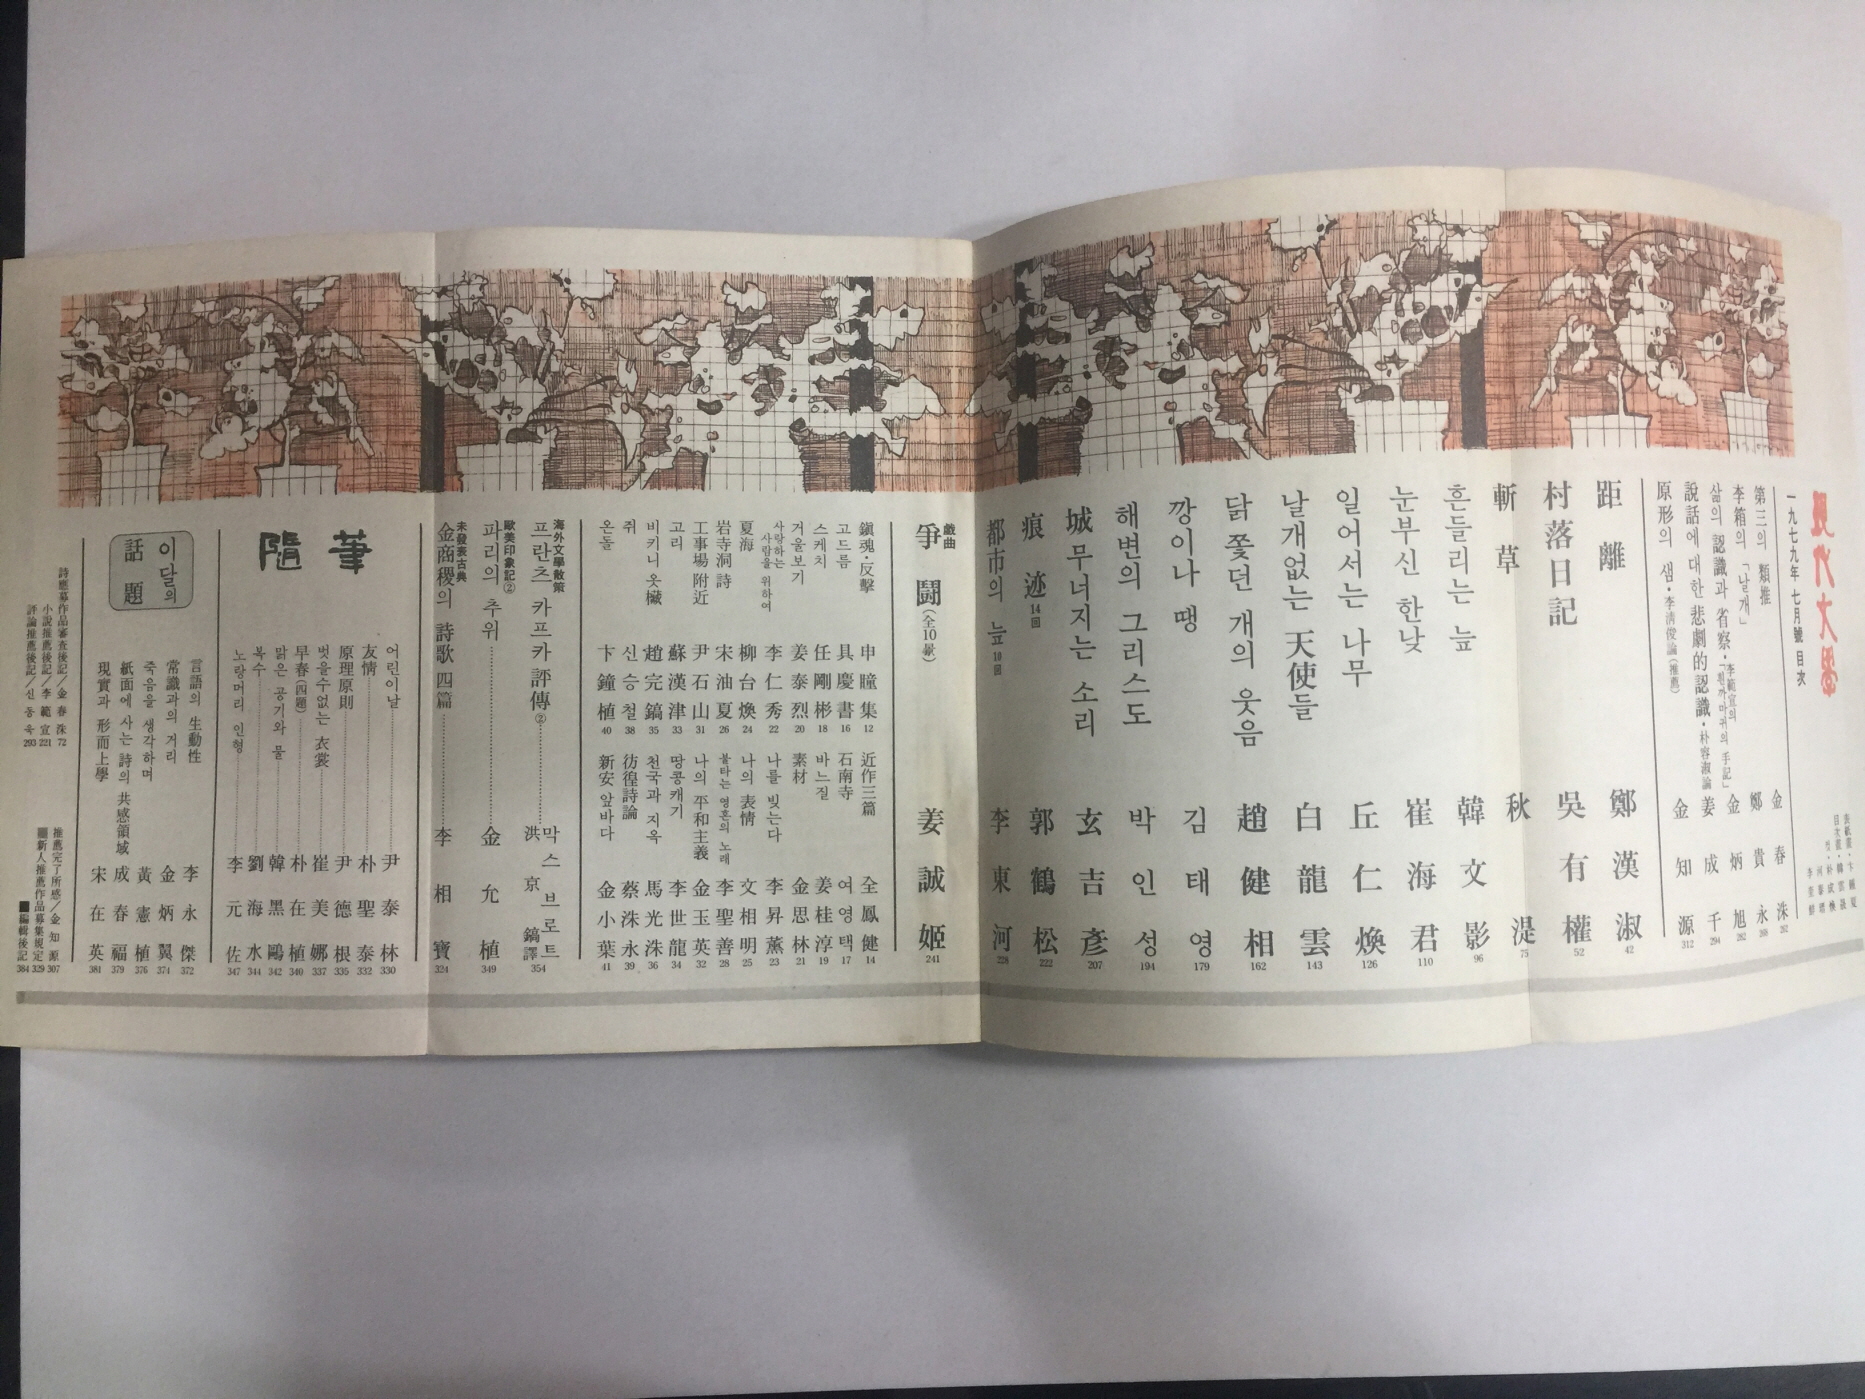 現代文學
一九七九年 七月號 目次
第三의 類推 金春洙 262
李箱의 「날개」 鄭貴永 268
삶의 認識과 省察・李範宣의 「흰까마귀의 手記」 金炳旭 282
說話에 대한 悲劇的 認識・朴容淑論 姜成千 294
原形의 샘・李淸俊論(推薦) 金知源 312
距離 鄭漢淑 42
村落日記 吳有權 52
斬草 秋湜 75
흔들리는 늪 韓文影 96
눈부신 한낮 崔海君 110
일어서는 나무 丘仁煥 126
날개없는 天使들 白龍雲 143
닭 쫓던 개의 웃음 趙健相 162
깡이나 땡 김태영 179
해변의 그리스도 박인성 194
城 무너지는 소리 玄吉彥 207
痕迹 14回 郭鶴松 222
都市의 늪 10回 李東河 228
戱曲
爭鬪(全10景) 姜誠姬 241
鎭魂・反擊 申瞳集 12
고드름 具慶書 16
스케치 任剛彬 18
거울보기 姜泰烈 20
사랑하는 사람을 위하여 李仁秀 22
夏海 柳台煥 24
岩寺洞 詩 宋油夏 26
工事場 附近 尹石山 31
고리 蘇漢津 33
비키니 옷欌 趙完鎬 35
쥐 신승철 38
온돌 卞鐘植 40
近作三篇 全鳳健 14
石南寺 여영택 17
바느질 姜桂淳 19
素材 金思林 21
나를 빚는다 李昇薰 23
나의 表情 文相明 25
불타는 영혼의 노래 李聖善 28
나의 平和主義 金玉英 32
땅콩캐기 李世龍 34
천국과 지옥 馬光洙 36
彷徨詩論 蔡洙永 39
新安 앞바다 金小葉 41
海外文學散策
프란츠 카프카 評傳② 막스 브로트 洪京鎬譯 354
歐美印象記②
파리의 추위 金允植 349
未發表古典
金商稷의 詩歌 四篇 李相寶 324
隨筆
어린이날 尹泰林 330
友情 朴聖泰 332
原理原則 尹德根 335
벗을수없는 衣裳 崔美娜 337
早春(四題) 朴在植 340
맑은 공기와 물 韓黑鷗 342
복수 劉海水 344
노랑머리 인형 李元佐 347
이달의 話題
言語의 生動性 李永傑 372
常識과의 거리 金炳翼 374
죽음을 생각하며 黃憲植 376
紙面에 사는 詩의 共感領域 成春福 379
現實과 形而上學 宋在英 381
詩應募作品審査後記/金春洙 72
小說推薦後記/李範宣 221
評論推薦後記/신동욱 293
推薦完了所感/金知源 307
■新人推薦作品募集規定 329
■編輯後記 384